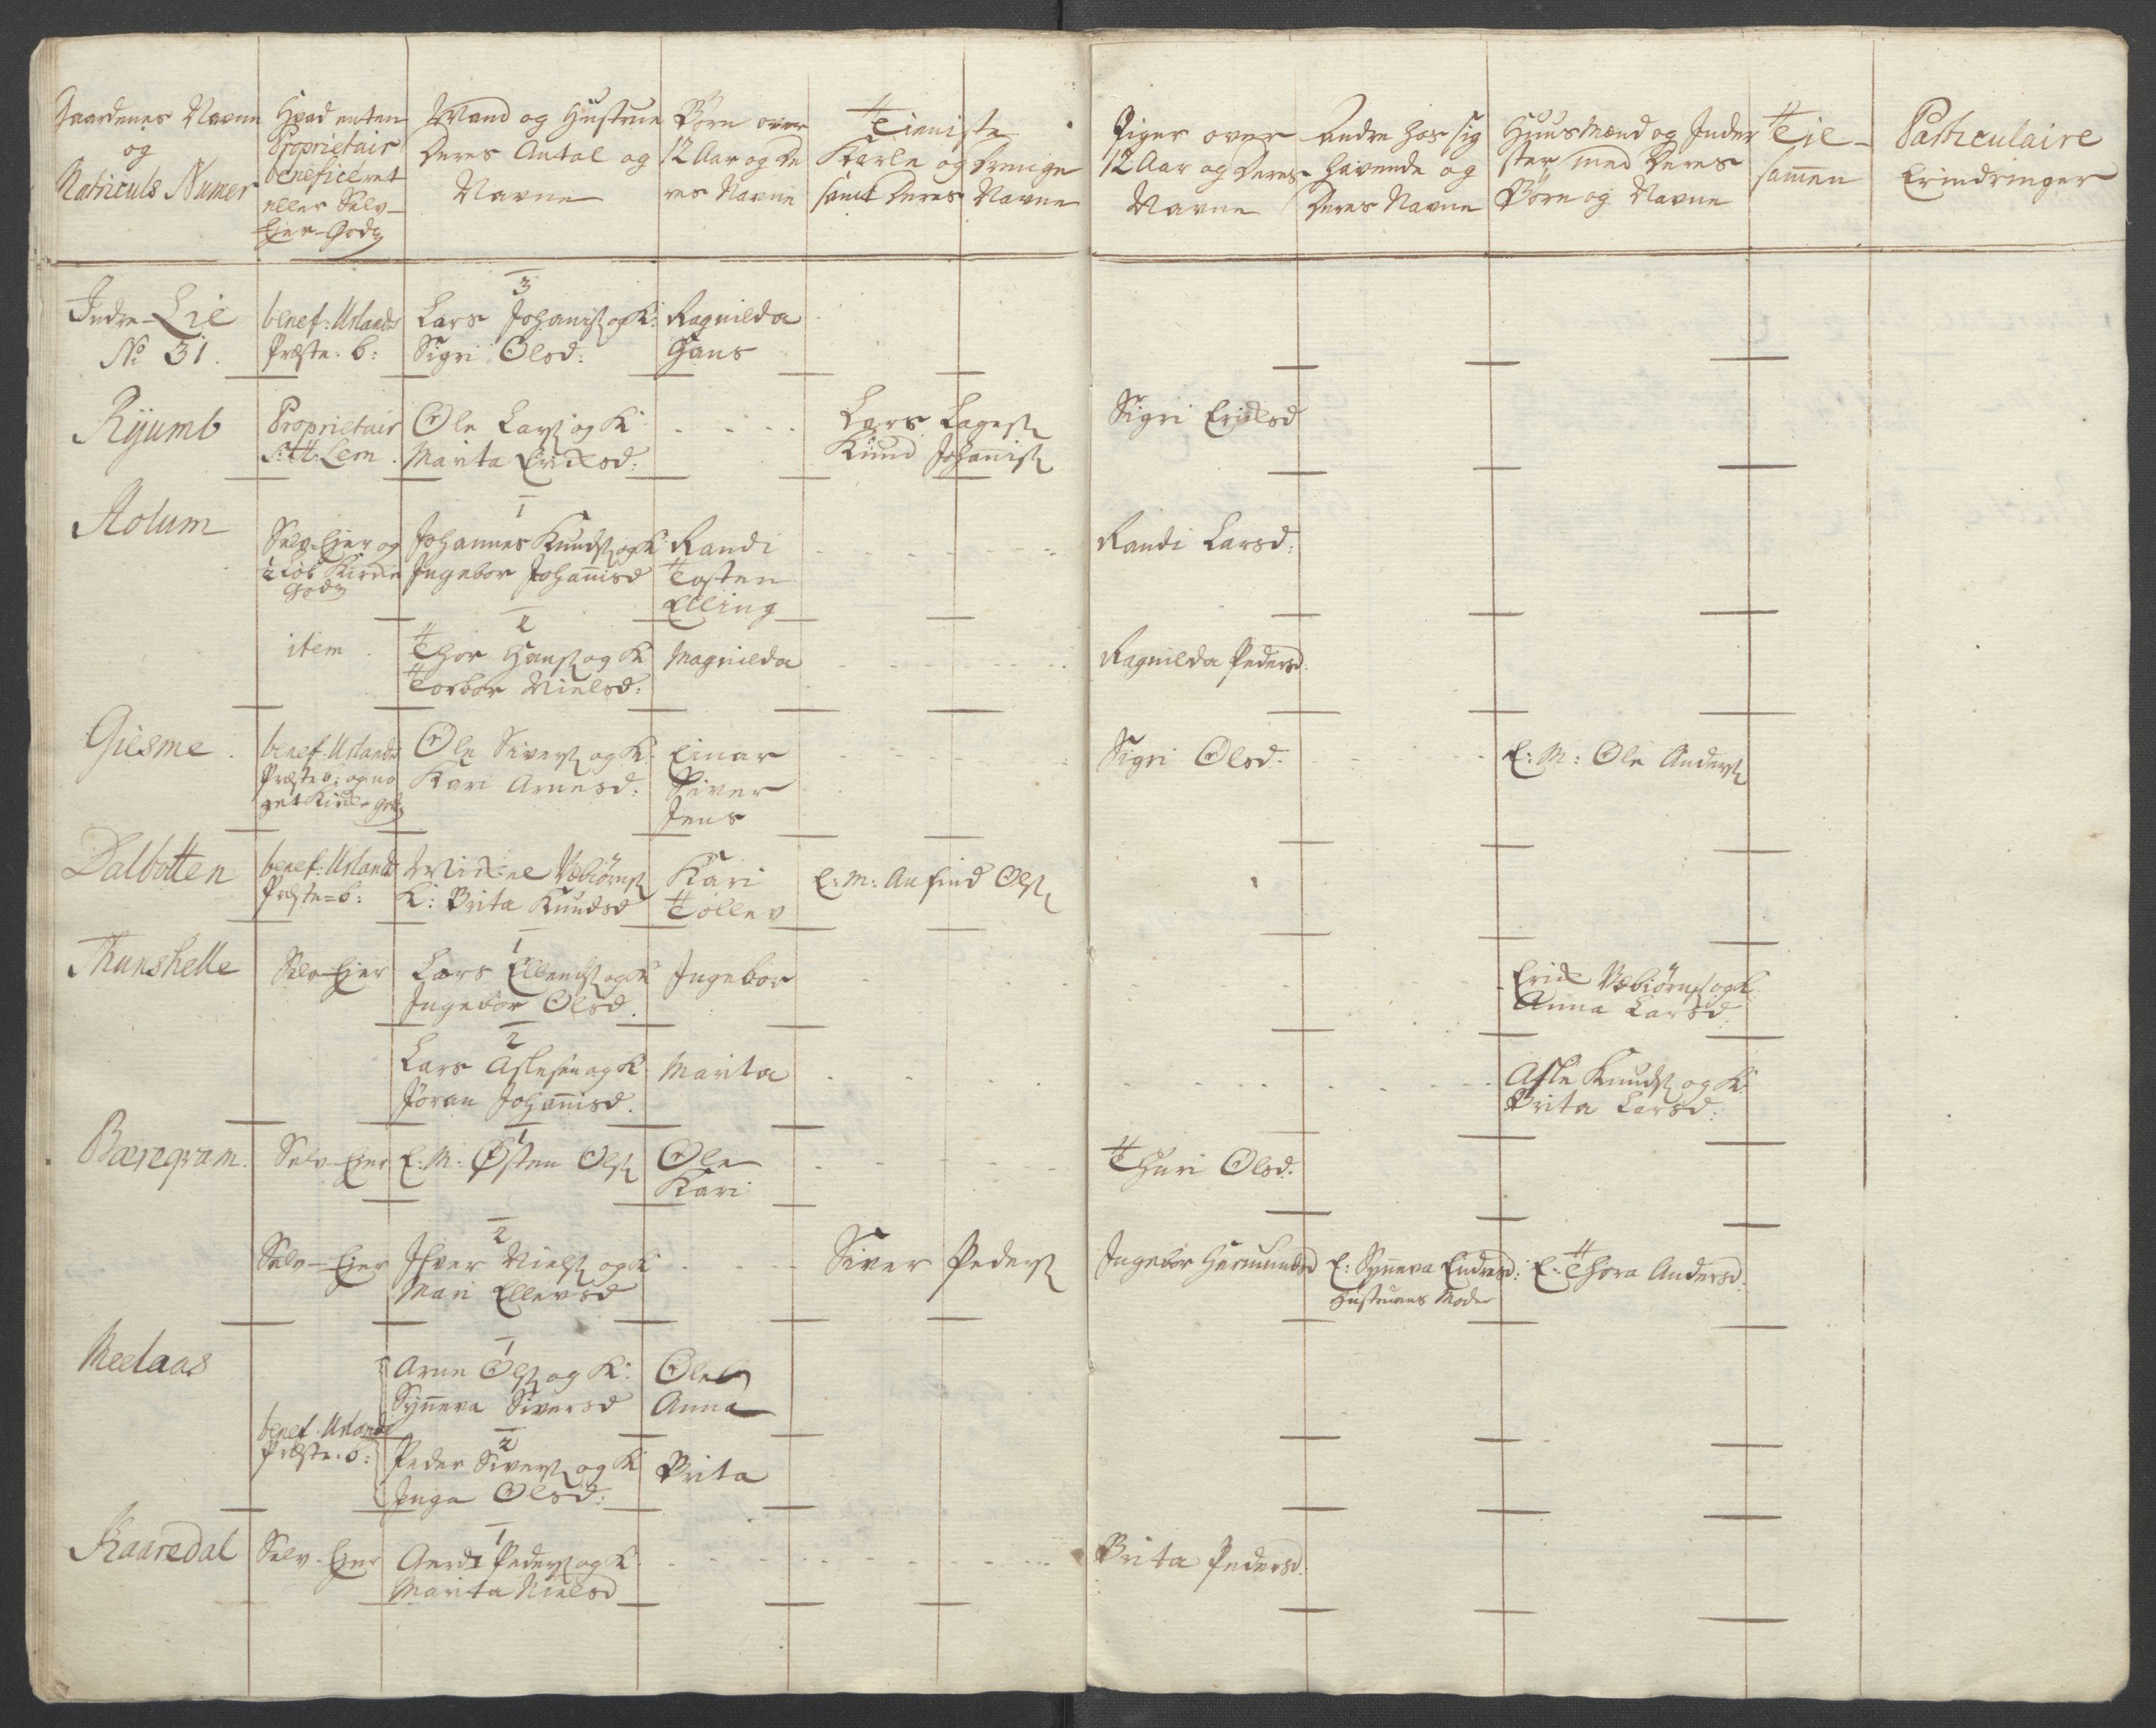 Gaardenes Navne
og
Matriculs Numer
Hvad enten
Proprietair
beneficeret
eller Selv-
Ejer-Godz
Mand og Hustrue
Deres Antal og
Navne
Børn over
12 Aar og De
res Navne
Tieniste
Karle og Drenge
samt Deres Navne
Piger over
12 Aar og Deres
Navne
Andre hos sig
havende og
Deres Navne
Huusmænd og Inder
ster med Deres
Børn og Navne
Til-
samen
Particulaire
Erindringer
Indre-Lie
No 31.
benef: Urlands
Præste: b:
3
Lars Johanis: og K:
Sigri Olsd:
Ragnilda
Hans
Ryumb
Proprietair
S: H: Lem.
Ole Lars: og K:
Marita Ericksd:
Lars Lages:
Knud Johanis:
Sigri Ericksd
Holum
Selv-Ejer og
Kirke
Godz
1
Johannes Knuds: og K
Ingebor Johanisd
Randi
Tosten
Elling
Randi Larsd:
item
2
Thor Hans: og K
Torbor Nielsd:
Magnilda
Ragnilda Pedersd.
Giesme.
benef. Urlands
Præste b: og no
get Kirke godz
Ole Sivers: og K.
Kari Arnesd:
Einar
Siver
Jens
Sigri Olsd.
E: M: Ole Anders:
Dalbotten
benef: Urlands
Præste=b:
Mickel Vebiørns:
K: Brita Knudsd
Kari
Tollev
E: M: Anfind Ols:
Thunshelle
Selv-Ejer
1
Lars Ellends: og K
Ingebor Olsd.
Ingebor
Erick Vebiørns: og K.
Anna Larsd.
2
Lars Aslesen og K
Jøran Johanisd.
Marita
Asle Knuds: og K:
Brita Larsd:
Bæregram.
Selv-Ejer
1
E: M: Østen Ols:
Ole
Kari
Thuri Olsd.
Selv-Ejer
2
Ifver Niels: og K
Mari Ellevsd
Siver Peders:
Ingebor Hermundsd
E: Synneva Endresd:
Hustruens Moder
E: Thora Andersd.
Melaas
benef. Urlands
Præste. b:
1
Arne Ols: og K:
Synneva Siversd
Ole
Anna
2
Peder Sivers: og K
Inga Olsd:
Brita
Kaaredal
Selv-Ejer
1
Peders: og K
Marita Nielsd
Brita Pedersd.